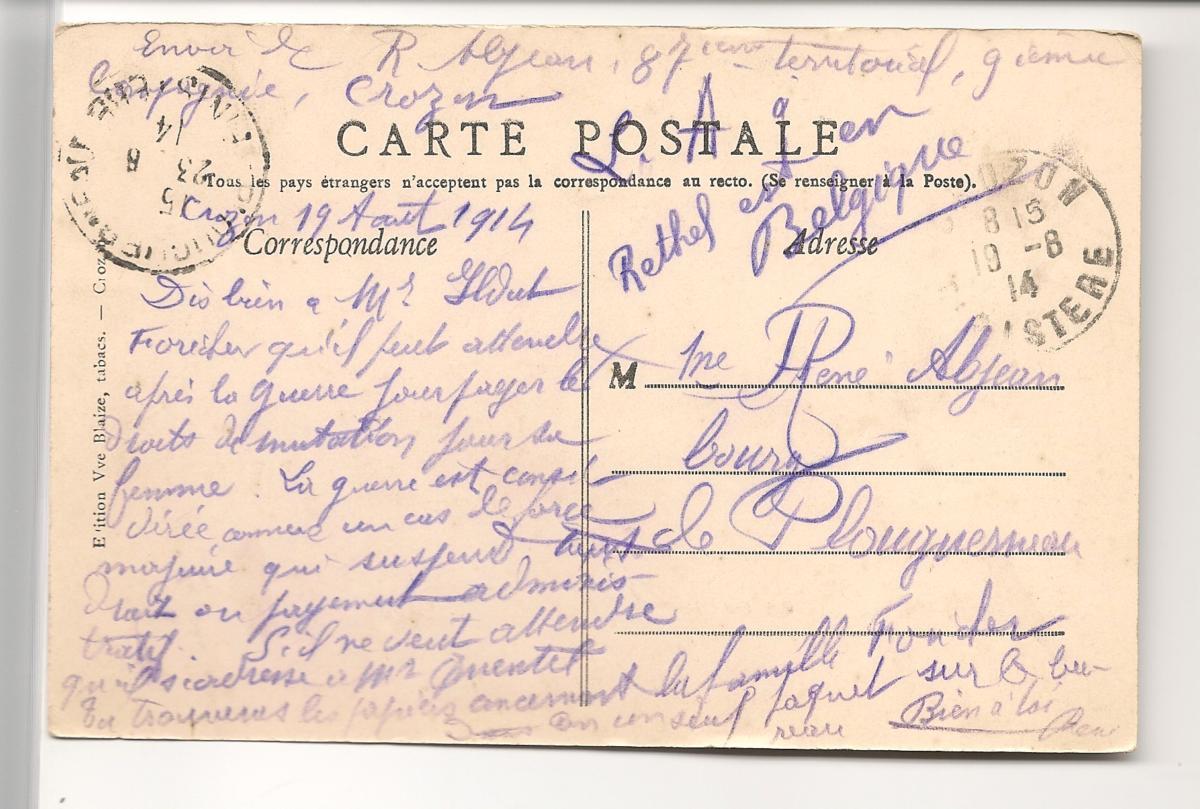 Envoi de R Abjean, 87ième territorial, 9ième
Compagnie, Crozon
CARTE POSTALE
Tous les pays étrangers n'acceptent pas la correspondance au recto. (Se renseigner à la Poste).
Crozon 19 Août 1914
Correspondance
Dis bien a Mr Ildut
qu'il peut attendre
après la guerre pour payer les
Droits de mutation pour sa
femme. La guerre est consi
dérée comme un cas de force
majeure qui suspend tout
droit ou payement adminis-
tratif. S'il ne veut attendre
qu'il s'adresse a Mr Quentel
Tu trouveras les papiers concernant la famille
en un seul paquet sur le bu-
reau Bien à toi
René
Le A
Rethel est en
Belgique
Adresse
M me René Abjean
bourg
de Plouguerneau
OZON
8 15
19 -8
14
ISTERE
15
23
8
14
E'ition Vve Blaize, tabacs. — Croz